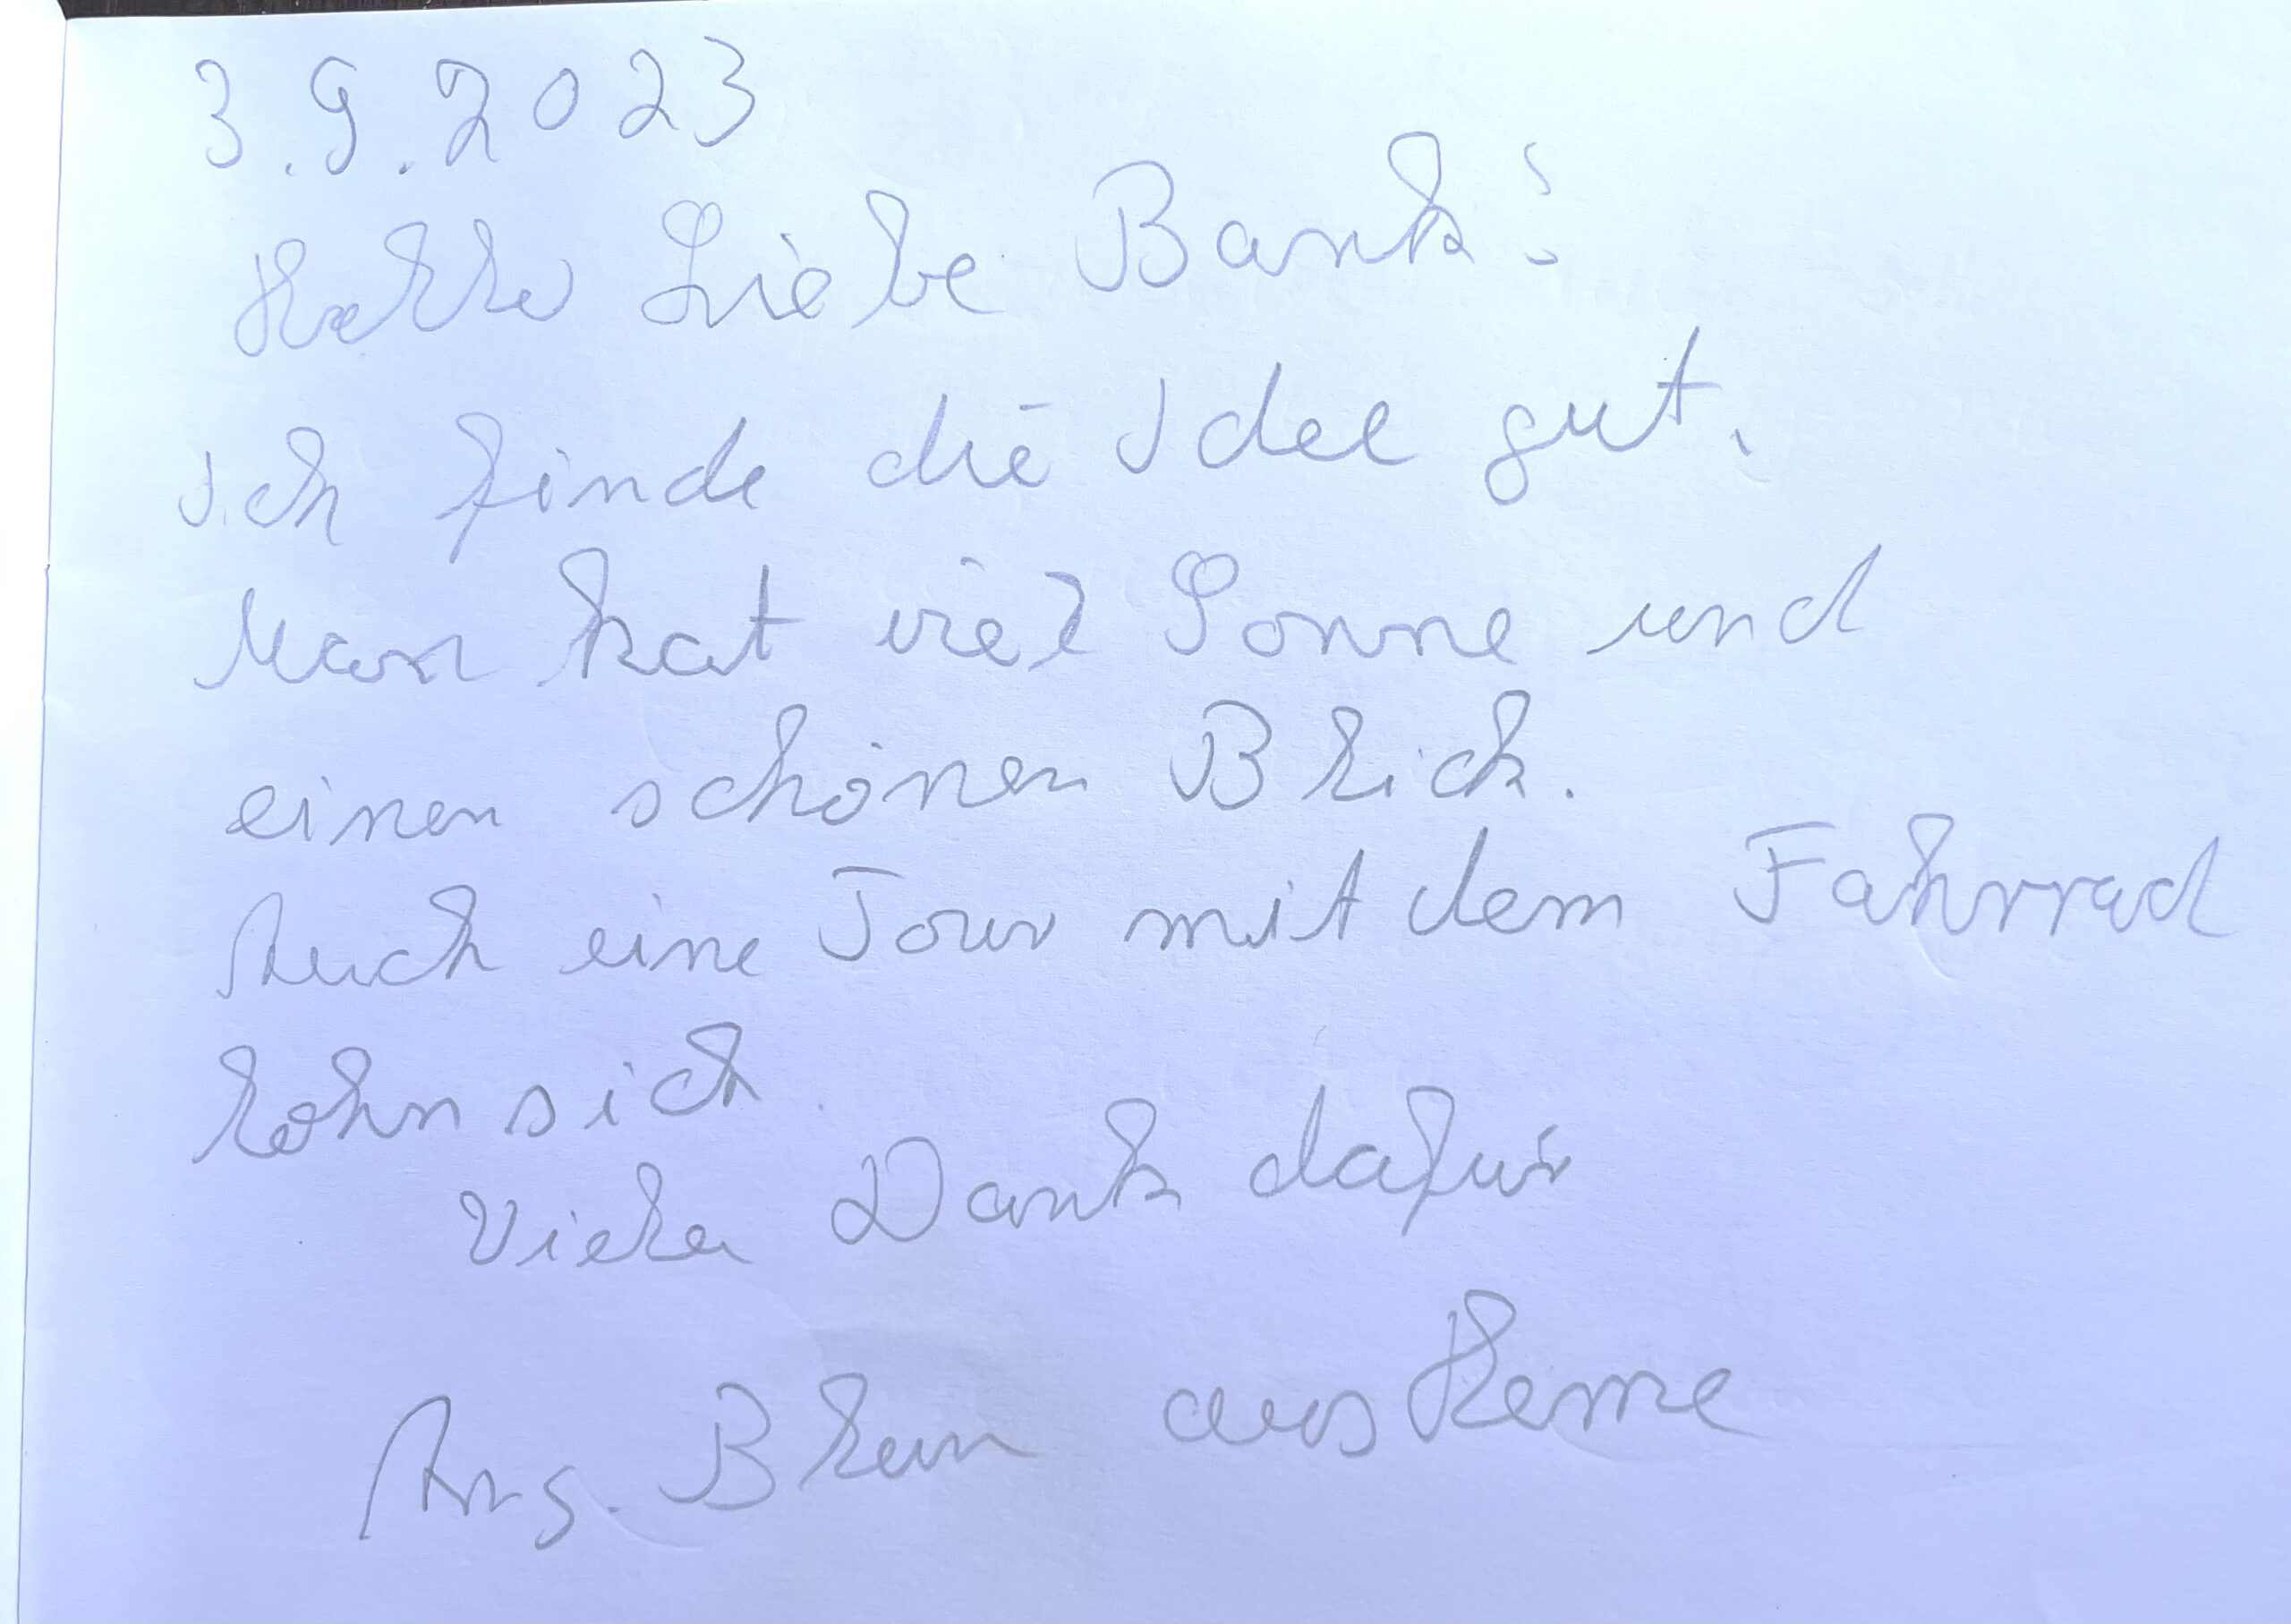 3.9.2023
Hallo Liebe Bank!
Ich finde die Idee gut.
Man hat viel Sonne und
einen schönen Blick.
Auch eine Tour mit dem Fahrrad
lohn sich
Vielen Dank dafür
Ang. Blum aus Herne